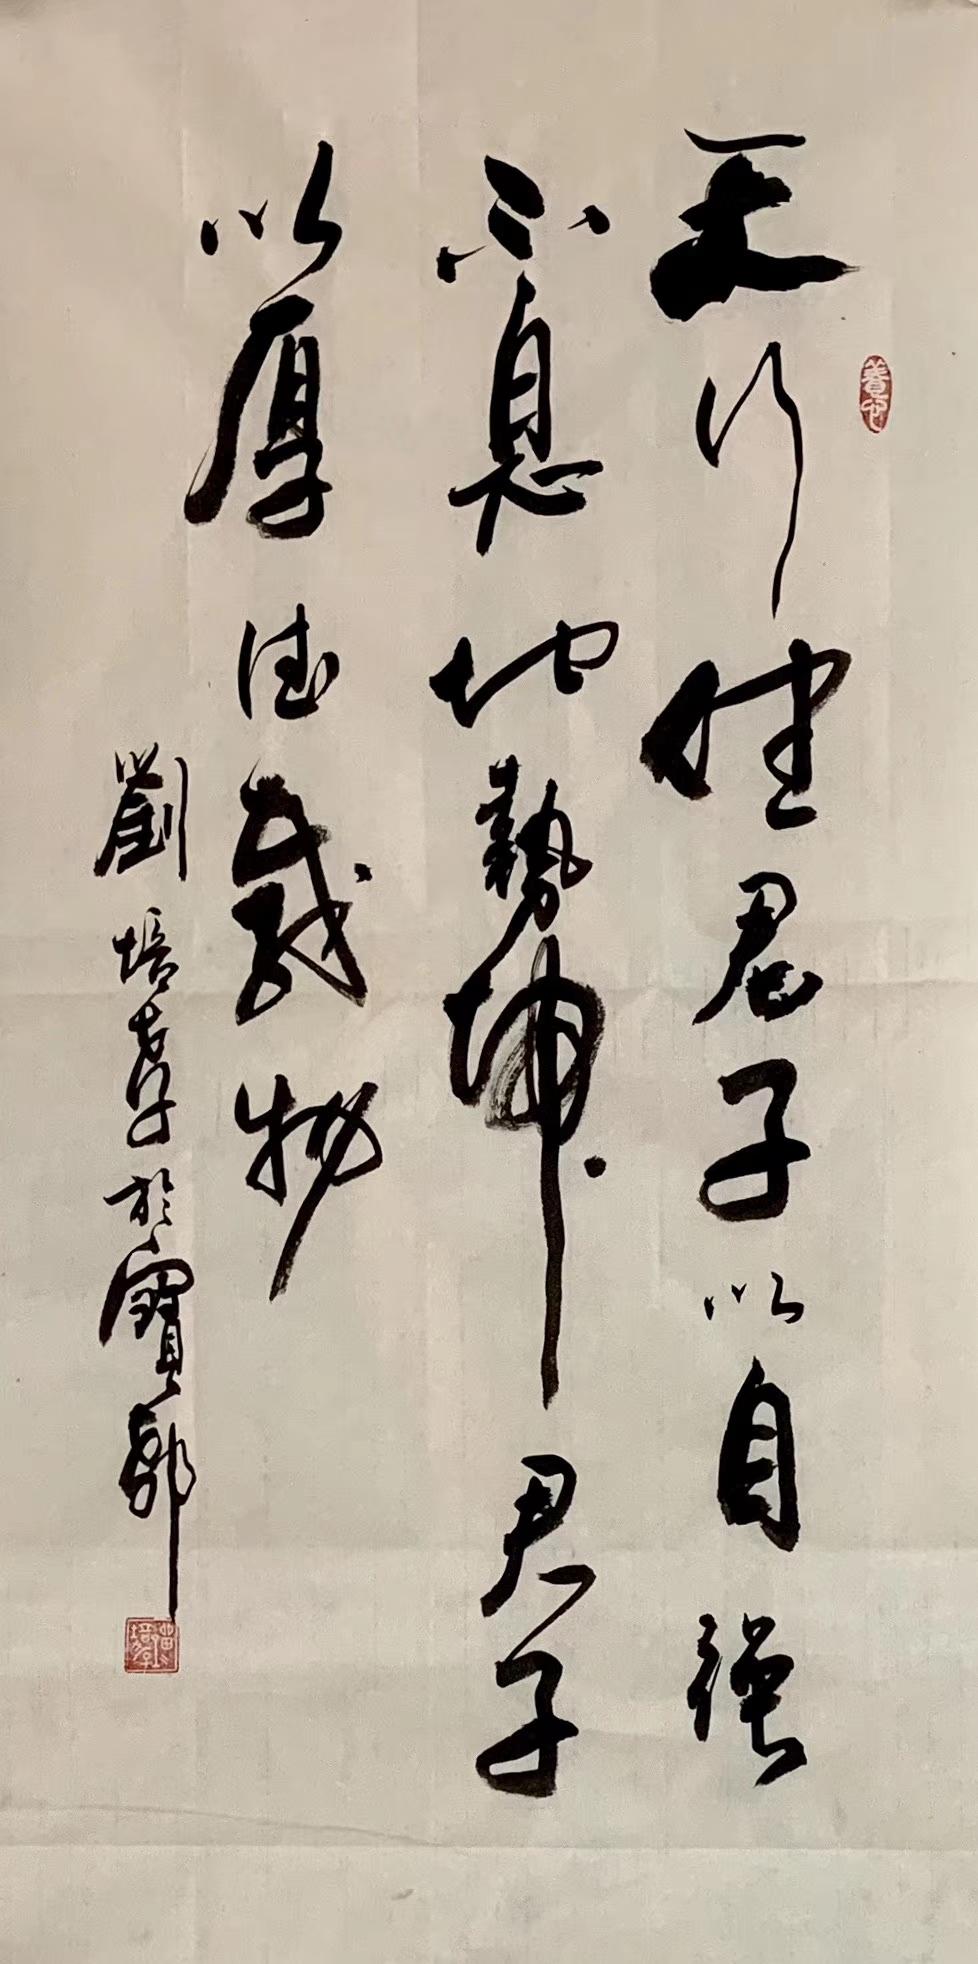 天行健君子以自強
不息地勢坤君子
以厚德載物
劉培孝於寶郭
養心